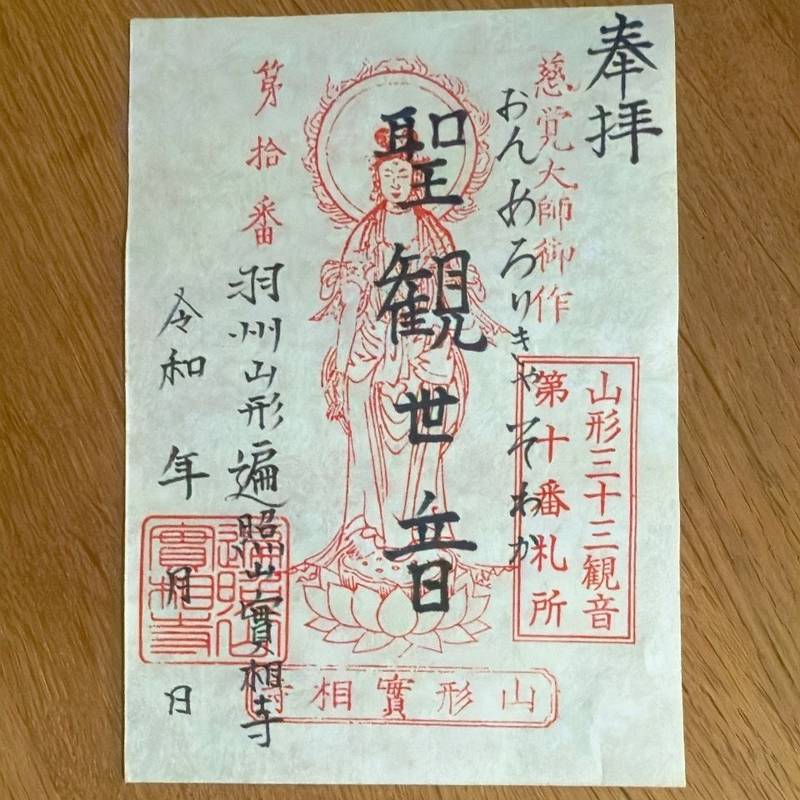 奉拝
慈覚大師御作
おんあろりきゃそわか
山形三十三観音
第十番札所
聖観世音
第拾番
羽州山形遍照山實相寺
令和 年 月 日
遍照山
實相寺
山形實相寺